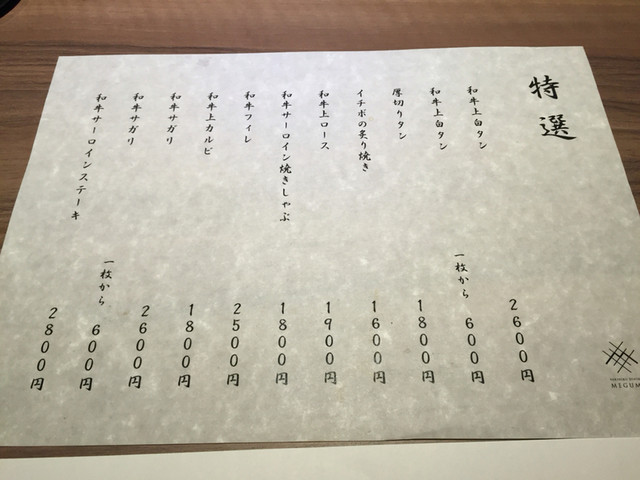 特選
和牛上白タン 2600円
和牛上白タン 一枚から 600円
厚切りタン 1800円
イチボの炙り焼き 1600円
和牛上ロース 1900円
和牛サーロイン焼きしゃぶ 1800円
和牛フィレ 2500円
和牛上カルビ 1800円
和牛サガリ 2600円
和牛サガリ 一枚から 600円
和牛サーロインステーキ 2800円
MEGUM